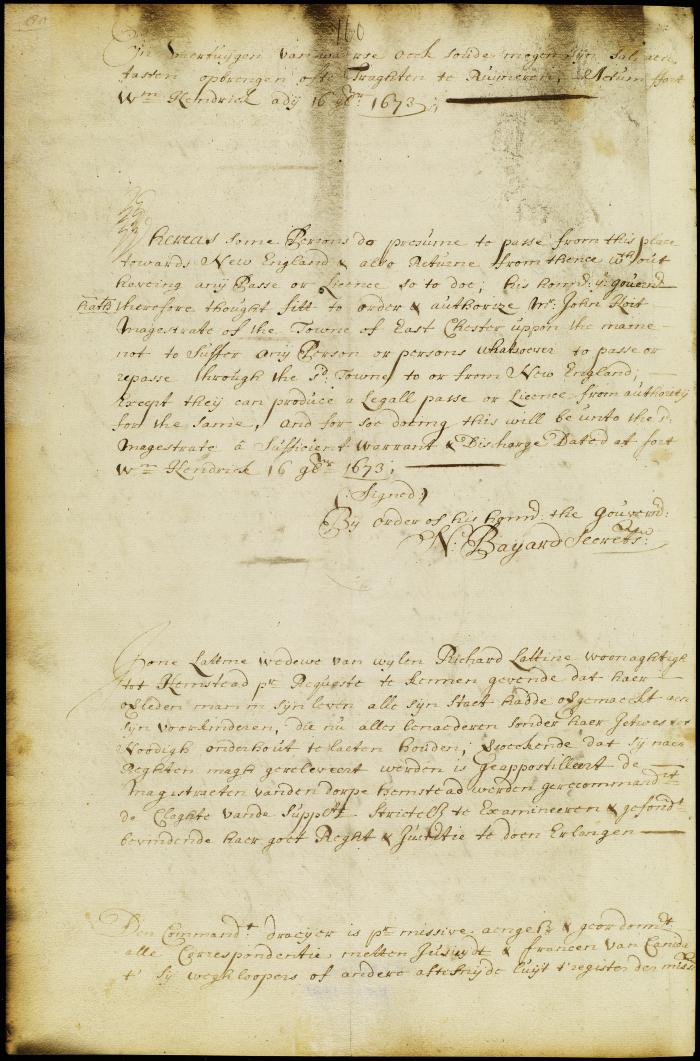 160
van waerse oock soude mogen syn
tassen opbrengen ofte Traghten te Ruyneren; Actum fort
Wm Hendrick ady 16 9br 1673;
Whereas some Persons do presume to passe from this place
towards New England & also Returne from thence wthout
haveing any Passe or Licence so to doe; his honnd: ye: gouvernd
hath therefore thought fitt to order & authorize Mr. John Hoit
Magestrate of the Towne of East Chester uppon the maine
not to Suffer any Person or persons whatsoever to passe or
repasse through the sd: Towne to or from New England;
Except they can produce a Legall passe or Licence from authority
for the Same, and for soe doeing this will be unto the sd.
Magestrate a Sufficient warrant & Discharge Dated at fort
Wm Hendrick 16 9br 1673;
(:Signed:)
By order of his honnd: the Gouvernd:
N: Bayard Secrets:
Jone Lattine wedewe van wylen Richard Lattine woonaghtigh
tot Hemstead pr Requeste te kennen gevende dat haer
overleden man in syn leven alle syn staet hadde opgemaeckt aen
syn voorkinderen, die nu alles benaederen sonder haer
Noodigh onderhout te laeten houden, versoeckende dat sy naer
Reghten magh gereleveert werden is geappostilleert de
Magistraeten vanden dorpe hemstead werden gerecommandt
de Claghte vande Supplte Strictelk te Examineren & gefondt
bevindende haer goet Reght & Justitie te doen Erlangen
Den Commandt: draeyer is pr missive & geordonnt
alle Correspondentie metten Jesuydt & francen van Canada
t' sy weghloopers of andere affte snyden